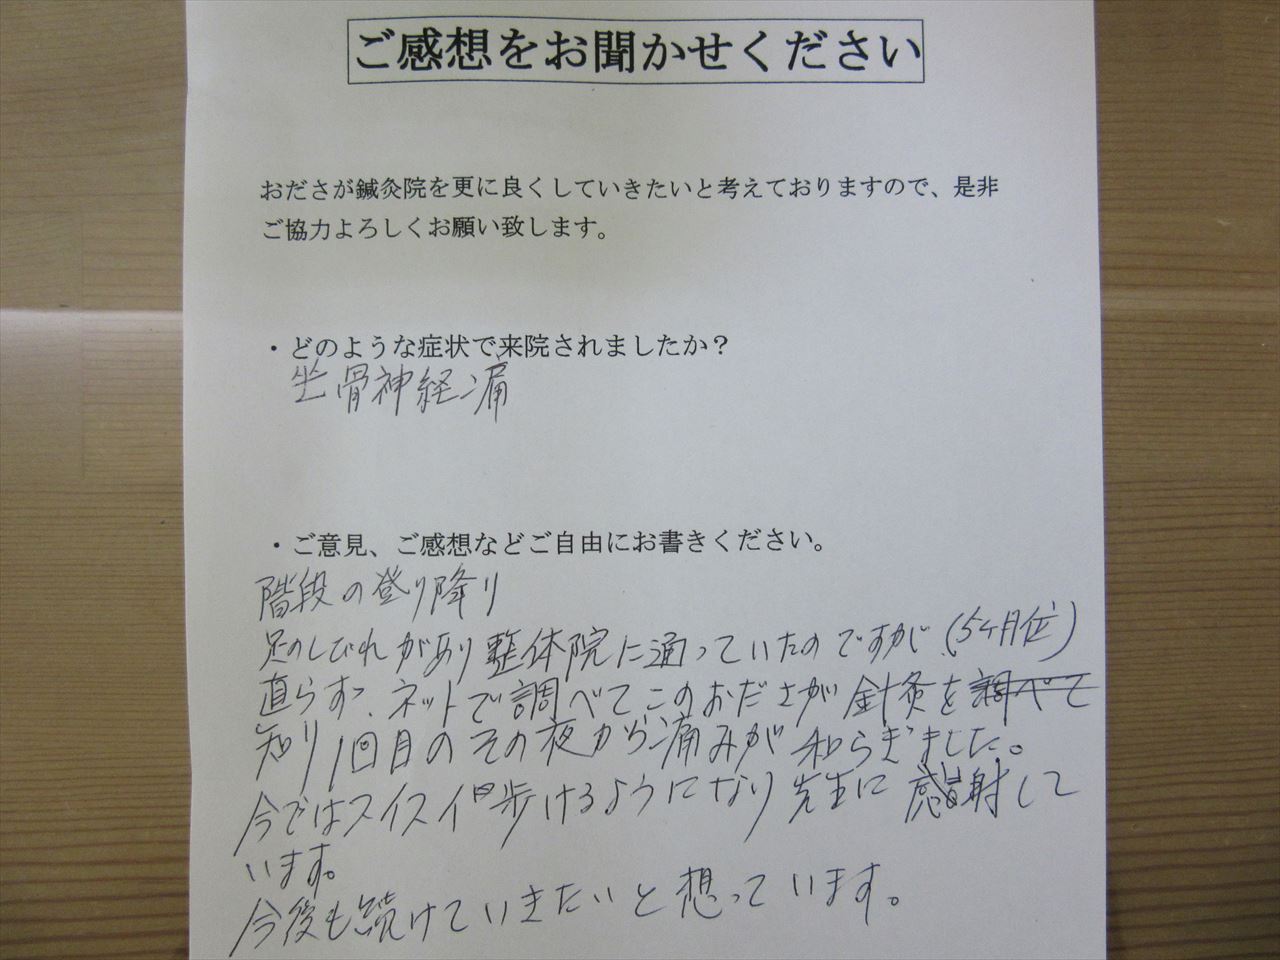 ご感想をお聞かせください
おださが鍼灸院を更に良くしていきたいと考えておりますので、是非
ご協力よろしくお願い致します。
・どのような症状で来院されましたか？
坐骨神経痛
・ご意見、ご感想などご自由にお書きください。
階段の登り降り
足のしびれがあり整体院に通っていたのですが、(5ヶ月位)
直らず、ネットで調べてこのおださが針灸を調べて
知り1回目のその夜から痛みが和らぎました。
今ではスイスイ歩けるようになり先生に感射して
います。
今後も続けていきたいと想っています。